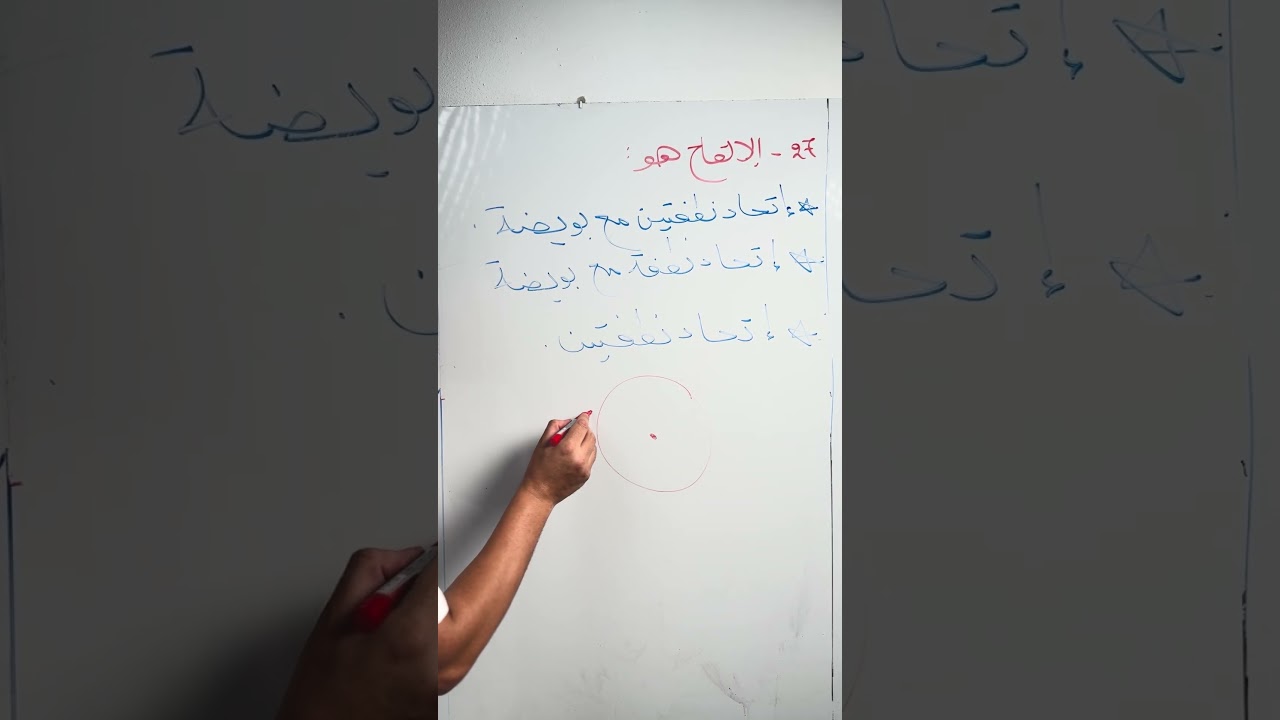 27 - الإلقاح هو :
* إتحاد نطفتين مع بويضة .
* إتحاد نطفة مع بويضة
* إتحاد نطفتين .